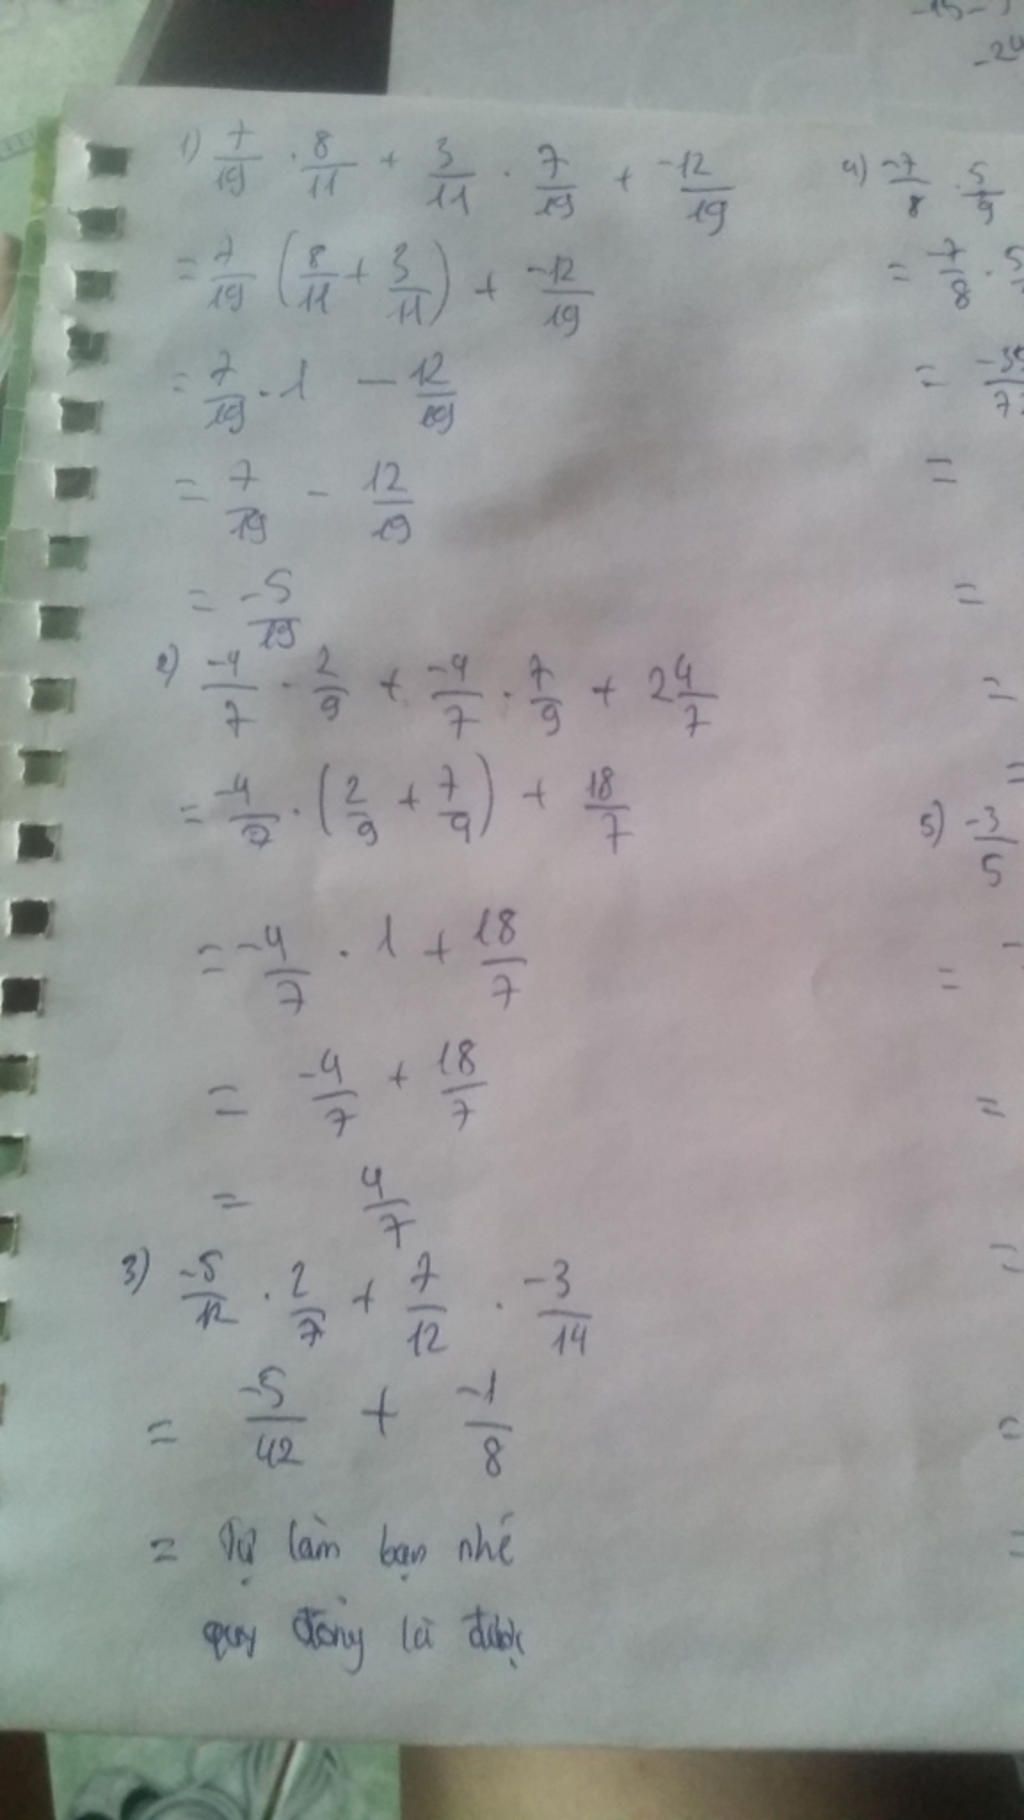 -15-
-24
1) 7/19 . 8/11 + 3/11 . 7/19 + -12/19
= 7/19 (8/11 + 3/11) + -12/19
= 7/19 . 1 - 12/19
= 7/19 - 12/19
= -5/19
2) -4/7 . 2/9 + -4/7 . 7/9 + 2 4/7
= -4/7 . (2/9 + 7/9) + 18/7
= -4/7 . 1 + 18/7
= -4/7 + 18/7
= 4/7
3) -5/12 . 2/7 + 7/12 . -3/14
= -5/42 + -1/8
= Tự làm bạn nhé
quy đồng là được
4) -7/8 . 5/9
= -7/8 . 5
=
=
=
=
=
5) -3/5
=
=
=
=
=